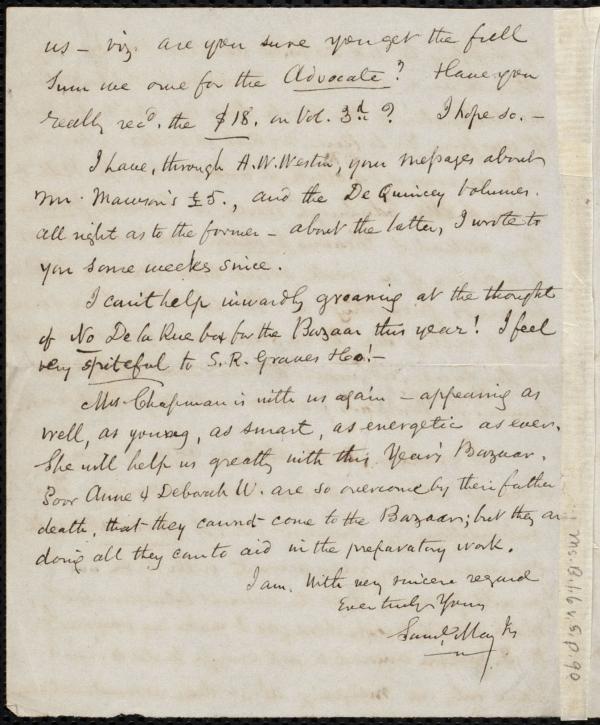 us – viz. are you sure you get the full
sum we owe for the Advocate? Have you
really recd. the $18. on Vol. 3d.? I hope so. –
I have, through A. W. Weston, your messages about
Mr. Mawson's £5., and the De Quincey volumes.
all right as to the former – about the latter, I wrote to
you some weeks since.
I can't help inwardly groaning at the thought
of No De la Rue box for the Bazaar this year! I feel
very spiteful to S. R. Graves & Co! –
Mrs. Chapman is with us again – appearing as
well, as young, as smart, as energetic as ever.
She will help us greatly with this Year's Bazaar.
Poor Anne & Deborah W. are so overcome by their father
death, that they cannot come to the Bazaar; but they are
doing all they can to aid in the preparatory work.
I am, With very sincere regard
Ever truly Yours
Saml. May Jr
Ms. B. 1. 6 v. 5, p. 90